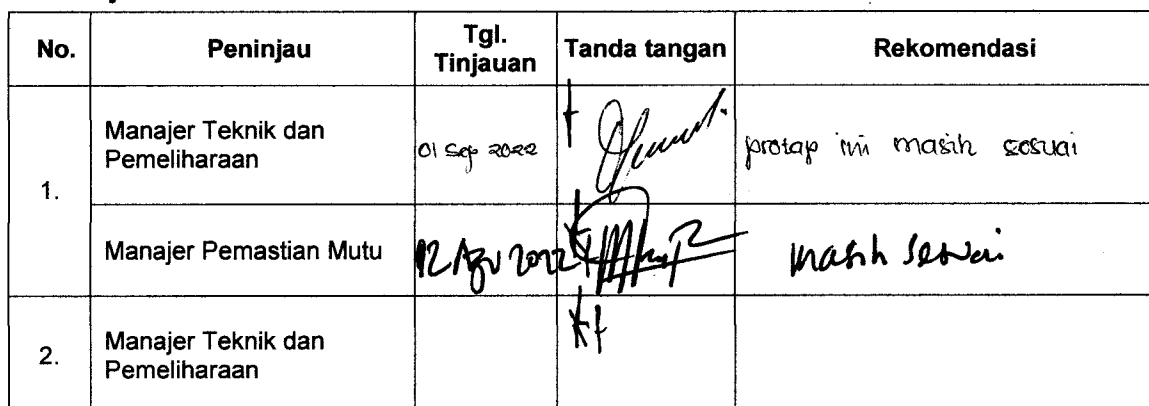 No.
Peninjau
Tgl.
Tinjauan
Tanda tangan
Rekomendasi
1.
Manajer Teknik dan
Pemeliharaan
01 Sep 2022
protap ini masih sesuai
Manajer Pemastian Mutu
12 Agu 2022
masih sesuai
2.
Manajer Teknik dan
Pemeliharaan